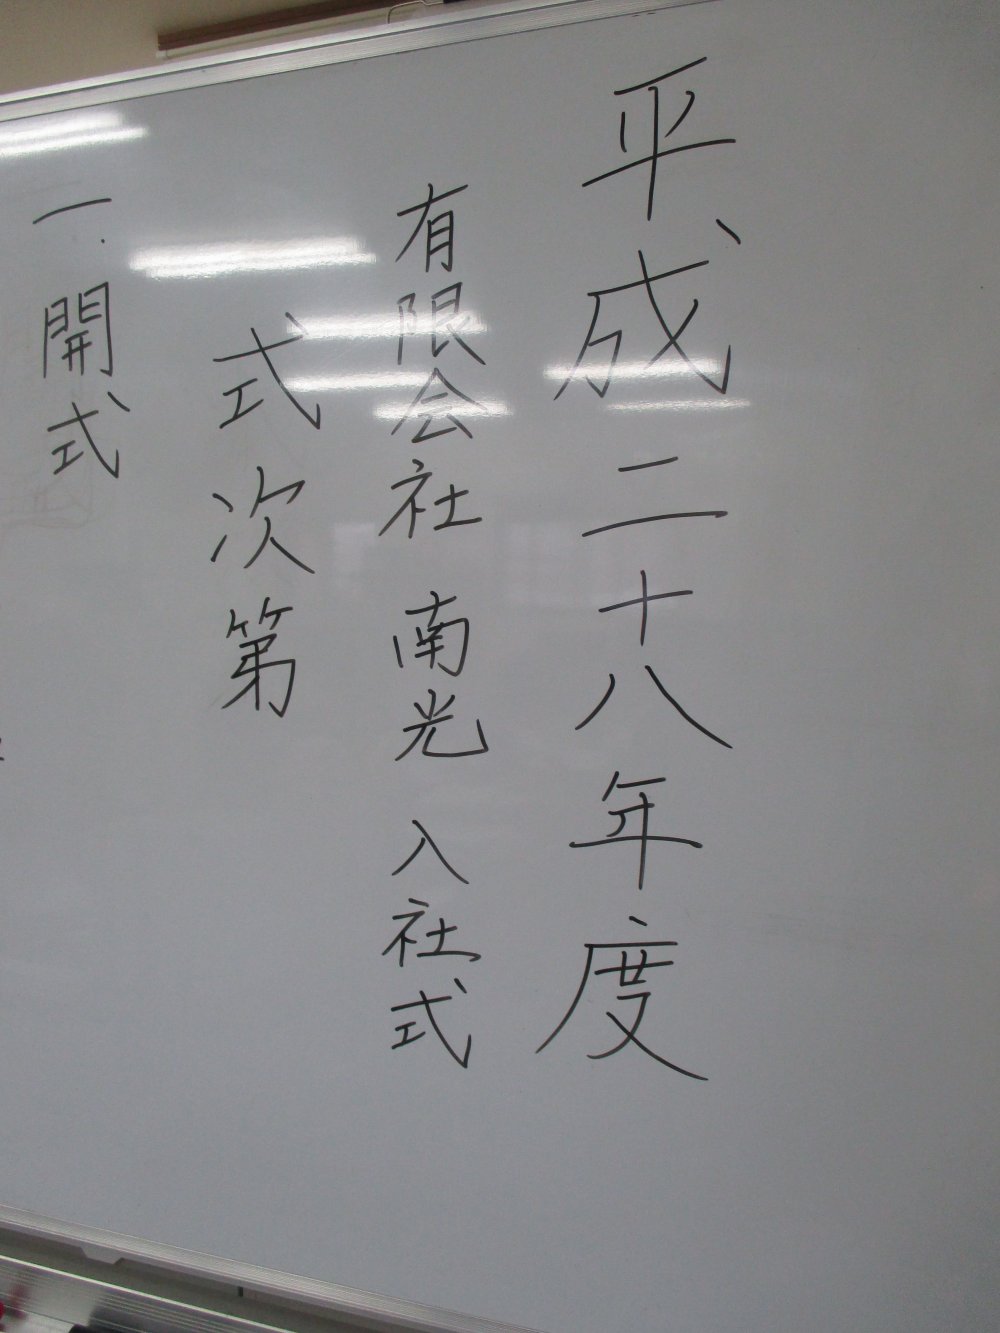 平成二十八年度
有限会社 南光 入社式
式次第
一. 開式